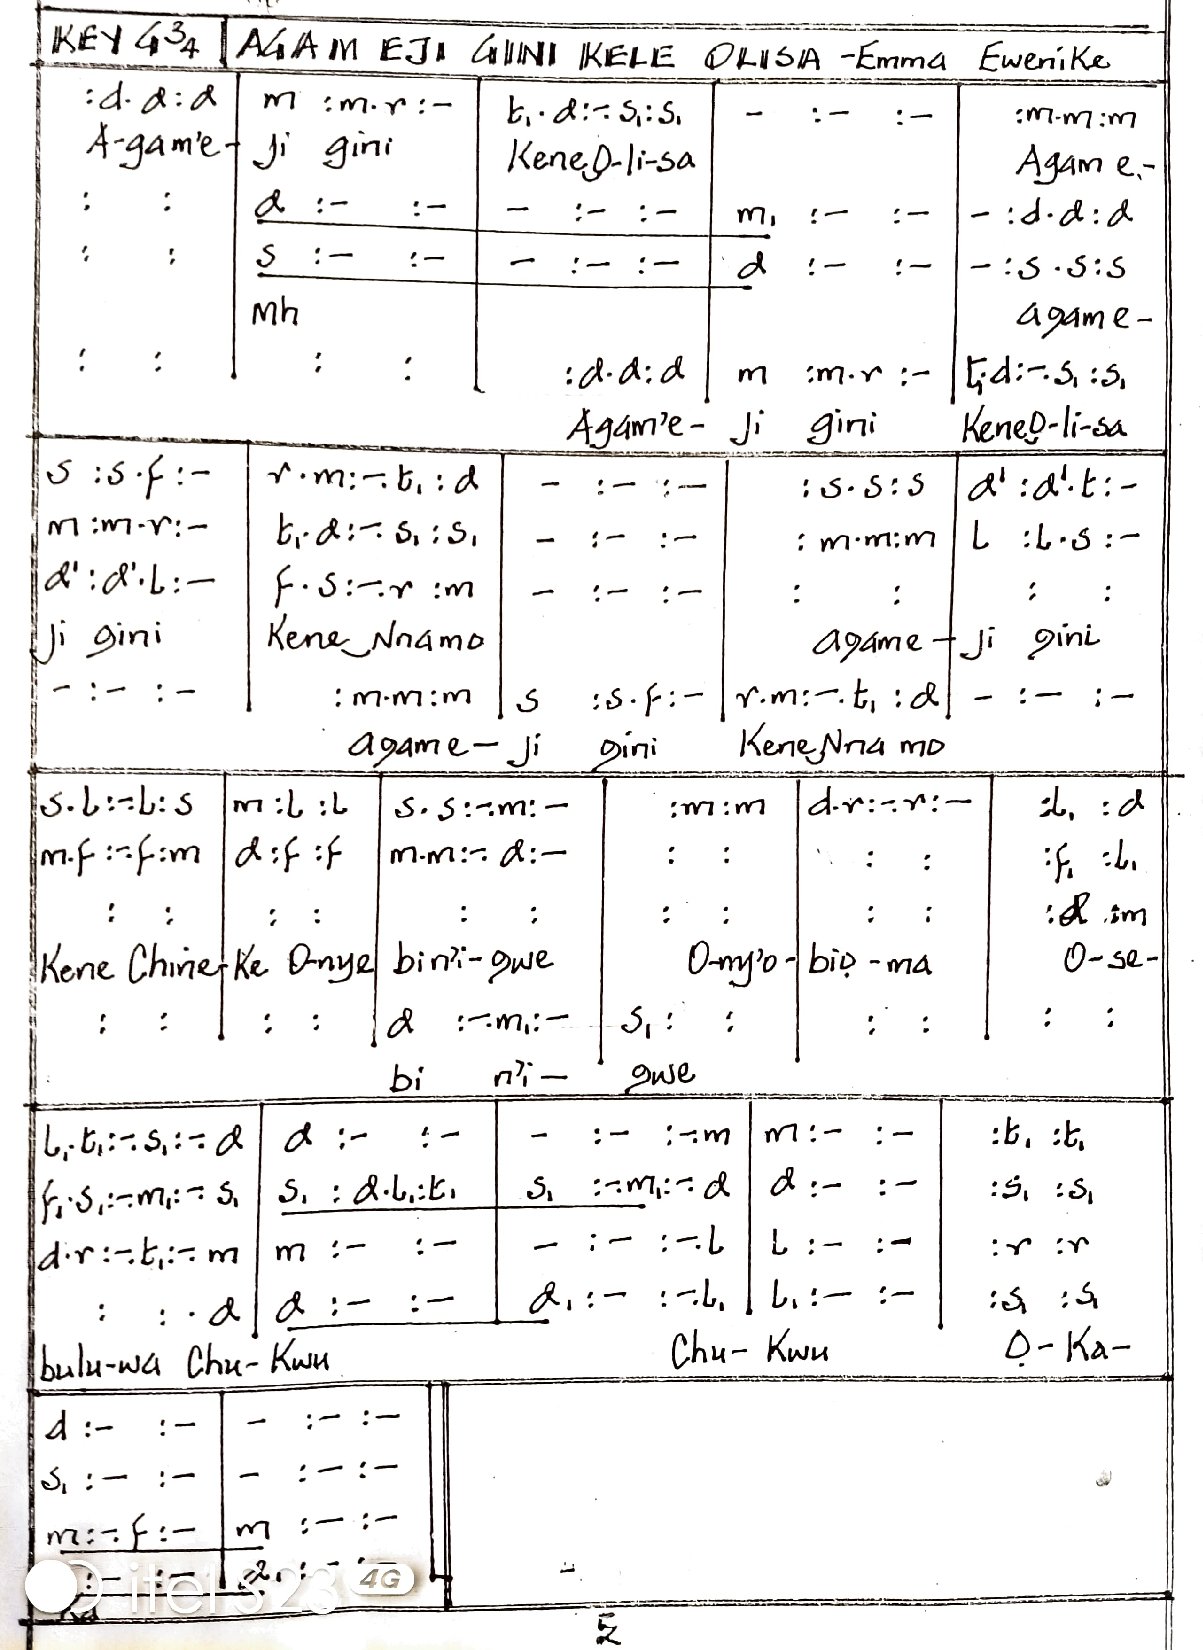 KEY G 3/4 | AGAM EJI GINI KELE OLISA -Emma Ewenike
:d.d:d | m :m.r :- | t₁.d:-.s₁:s₁ | - :- :- | :m.m:m
A-gam'e- Ji gini KeneỌ-li-sa Agam e-
: : | d :- :- | - :- :- | m₁ :- :- | - :d.d:d
: : | s :- :- | - :- :- | d :- :- | - :s.s:s
Mh agame-
: : | : : | :d.d:d | m :m.r :- | t₁.d:-.s₁:s₁
Agam'e- Ji gini KeneỌ-li-sa
s :s.f:- | r.m:-.t₁:d | - :- :- | :s.s:s | d' :d'.t:-
m :m.r:- | t₁.d:-.s₁:s₁ | - :- :- | :m.m:m | L :L.s:-
d' :d'.L:- | f.s:-.r:m | - :- :- | : : | : :
Ji gini Kene Nnamo agame- Ji gini
- :- :- | :m.m:m | s :s.f:- | r.m:-.t₁:d | - :- :-
agame- Ji gini Kene Nna mo
s.L:-.L:s | m :L :L | s.s:-.m:- | :m:m | d.r:-.r:- | :L₁ :d
m.f:-.f:m | d:f :f | m.m:-.d:- | : : | : : | :f₁ :L₁
: : | : : | : : | : : | : : | :d :m
Kene Chine-Ke O-nye bin'i-gwe O-ny'o- biọ-ma O-se-
: : | : : | d :-.m₁:- | s₁: : | : : | : :
bi n'i- gwe
L₁.t₁:-.s₁:-.d | d :- :- | - :- :-.m | m:- :- | :t₁ :t₁
f₁.s₁:-.m₁:-.s₁ | s₁ :d.L₁:t₁ | s₁ :-.m₁:-.d | d :- :- | :s₁ :s₁
d.r:-.t₁:-.m | m :- :- | - :- :-.L | L :- :- | :r :r
: :.d | d :- :- | d₁ :- :-.L₁ | L₁:- :- | :s₁ :s₁
bulu-wa Chu-Kwu Chu-Kwu Ọ-Ka-
d :- :- | - :- :-
s₁ :- :- | - :- :-
m:-.f:- | m :- :-
:- :- | d₁ :- :-
itel S23 4G
Ka
5